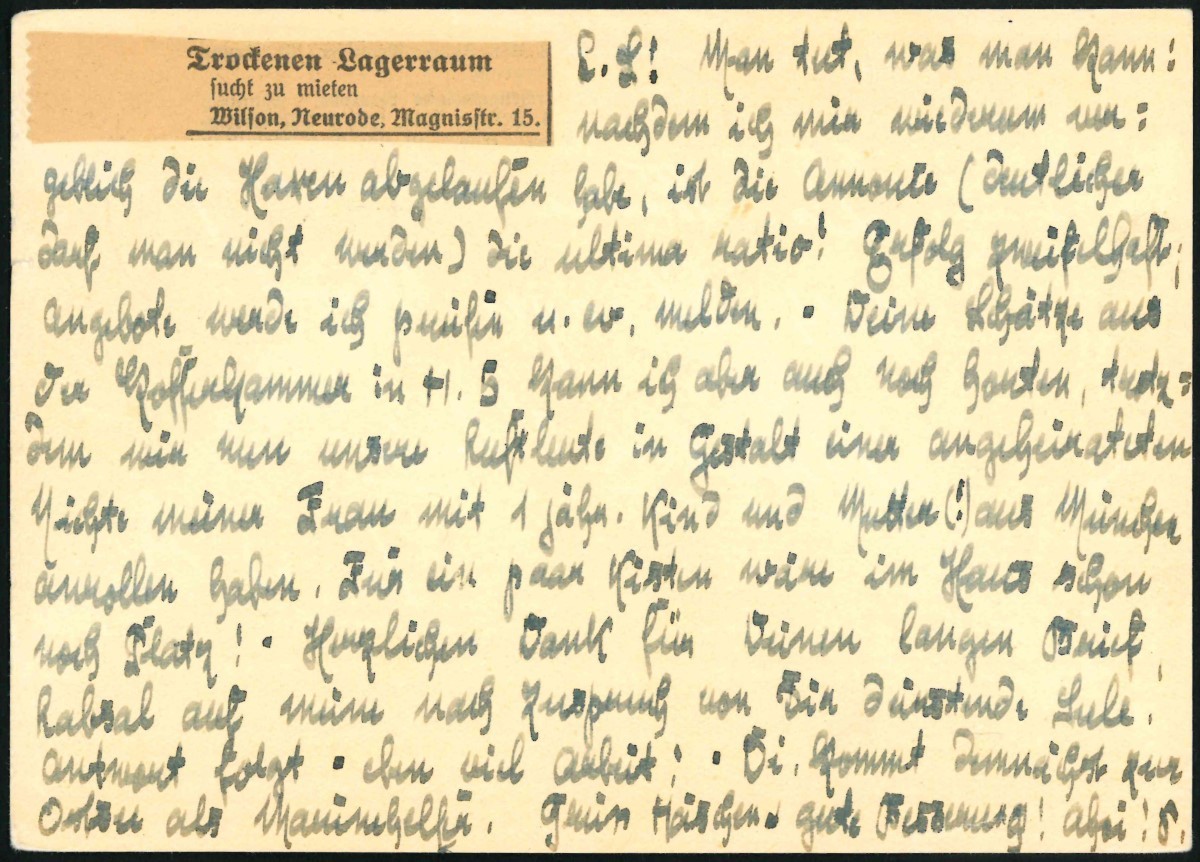 Trockenen Lagerraum
sucht zu mieten
Wilson, Neurode, Magnisstr. 15.
L. L! Man tut, was man kann:
nachdem ich mir wiederum ver=
geblich die Haxen abgelaufen habe, ist die Annonce (deutlicher
darf man nicht werden) die ultima ratio! Erfolg zweifelhaft,
Angebote werde ich prüfen u. ev. melden. - Deine Schätze aus
der Kofferkammer in H. 5 kann ich aber auch noch horten, trotz=
dem wir nun unsere Luftleute in Gestalt einer angeheirateten
Nichte meiner Frau mit 1 jähr. Kind und Mutter (!) aus München
anrollen haben. Für ein paar Kisten wäre im Haus schon
noch Platz! - Herzlichen Dank für Deinen langen Brief,
Labsal auf meine nach Zuspruch von Dir dürstende Seele.
Antwort folgt - eben viel Arbeit! - Di. kommt demnächst zur
Ostsee als Marinehelfer. Grüss Häschen gute Besserung! ahoi! S.